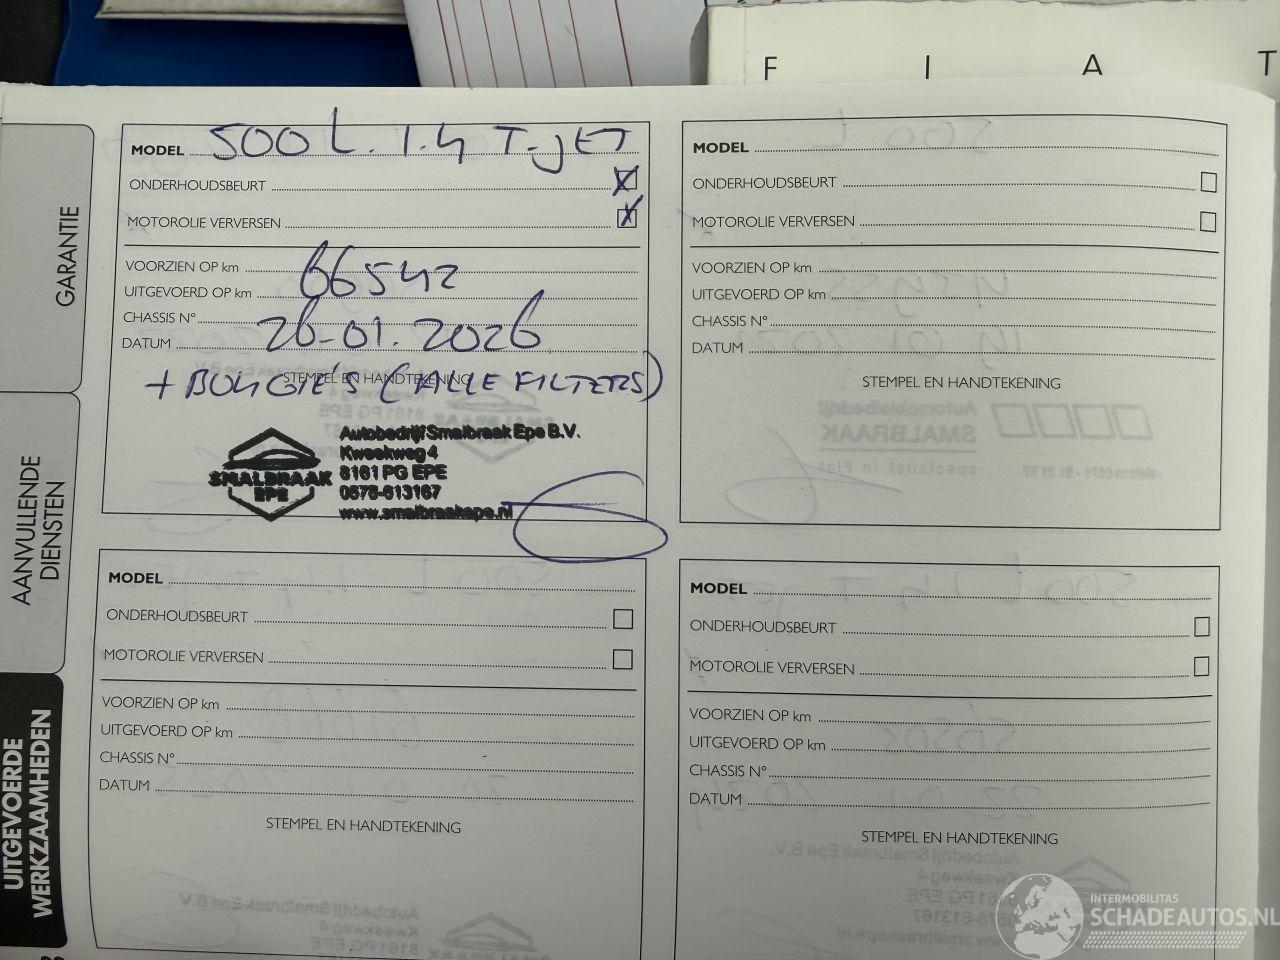 F I A T
GARANTIE
AANVULLENDE
DIENSTEN
UITGEVOERDE
WERKZAAMHEDEN
MODEL 500 L. 1.4 T-JET
ONDERHOUDSBEURT
MOTOROLIE VERVERSEN
VOORZIEN OP km
66542
UITGEVOERD OP km
CHASSIS Nº
DATUM 26-01.2026
STEMPEL EN HANDTEKENING
+ BOUGIE'S (ALLE FILTERS)
SMALBRAAK
EPE
Autobedrijf Smalbraak Epe B.V.
Kweekweg 4
8161 PG EPE
0578-613167
www.smalbraakepe.nl
MODEL
ONDERHOUDSBEURT
MOTOROLIE VERVERSEN
VOORZIEN OP km
UITGEVOERD OP km
CHASSIS Nº
DATUM
STEMPEL EN HANDTEKENING
MODEL
ONDERHOUDSBEURT
MOTOROLIE VERVERSEN
VOORZIEN OP km
UITGEVOERD OP km
CHASSIS Nº
DATUM
STEMPEL EN HANDTEKENING
MODEL
ONDERHOUDSBEURT
MOTOROLIE VERVERSEN
VOORZIEN OP km
UITGEVOERD OP km
CHASSIS Nº
DATUM
STEMPEL EN HANDTEKENING
INTERMOBILITAS
SCHADEAUTOS.NL